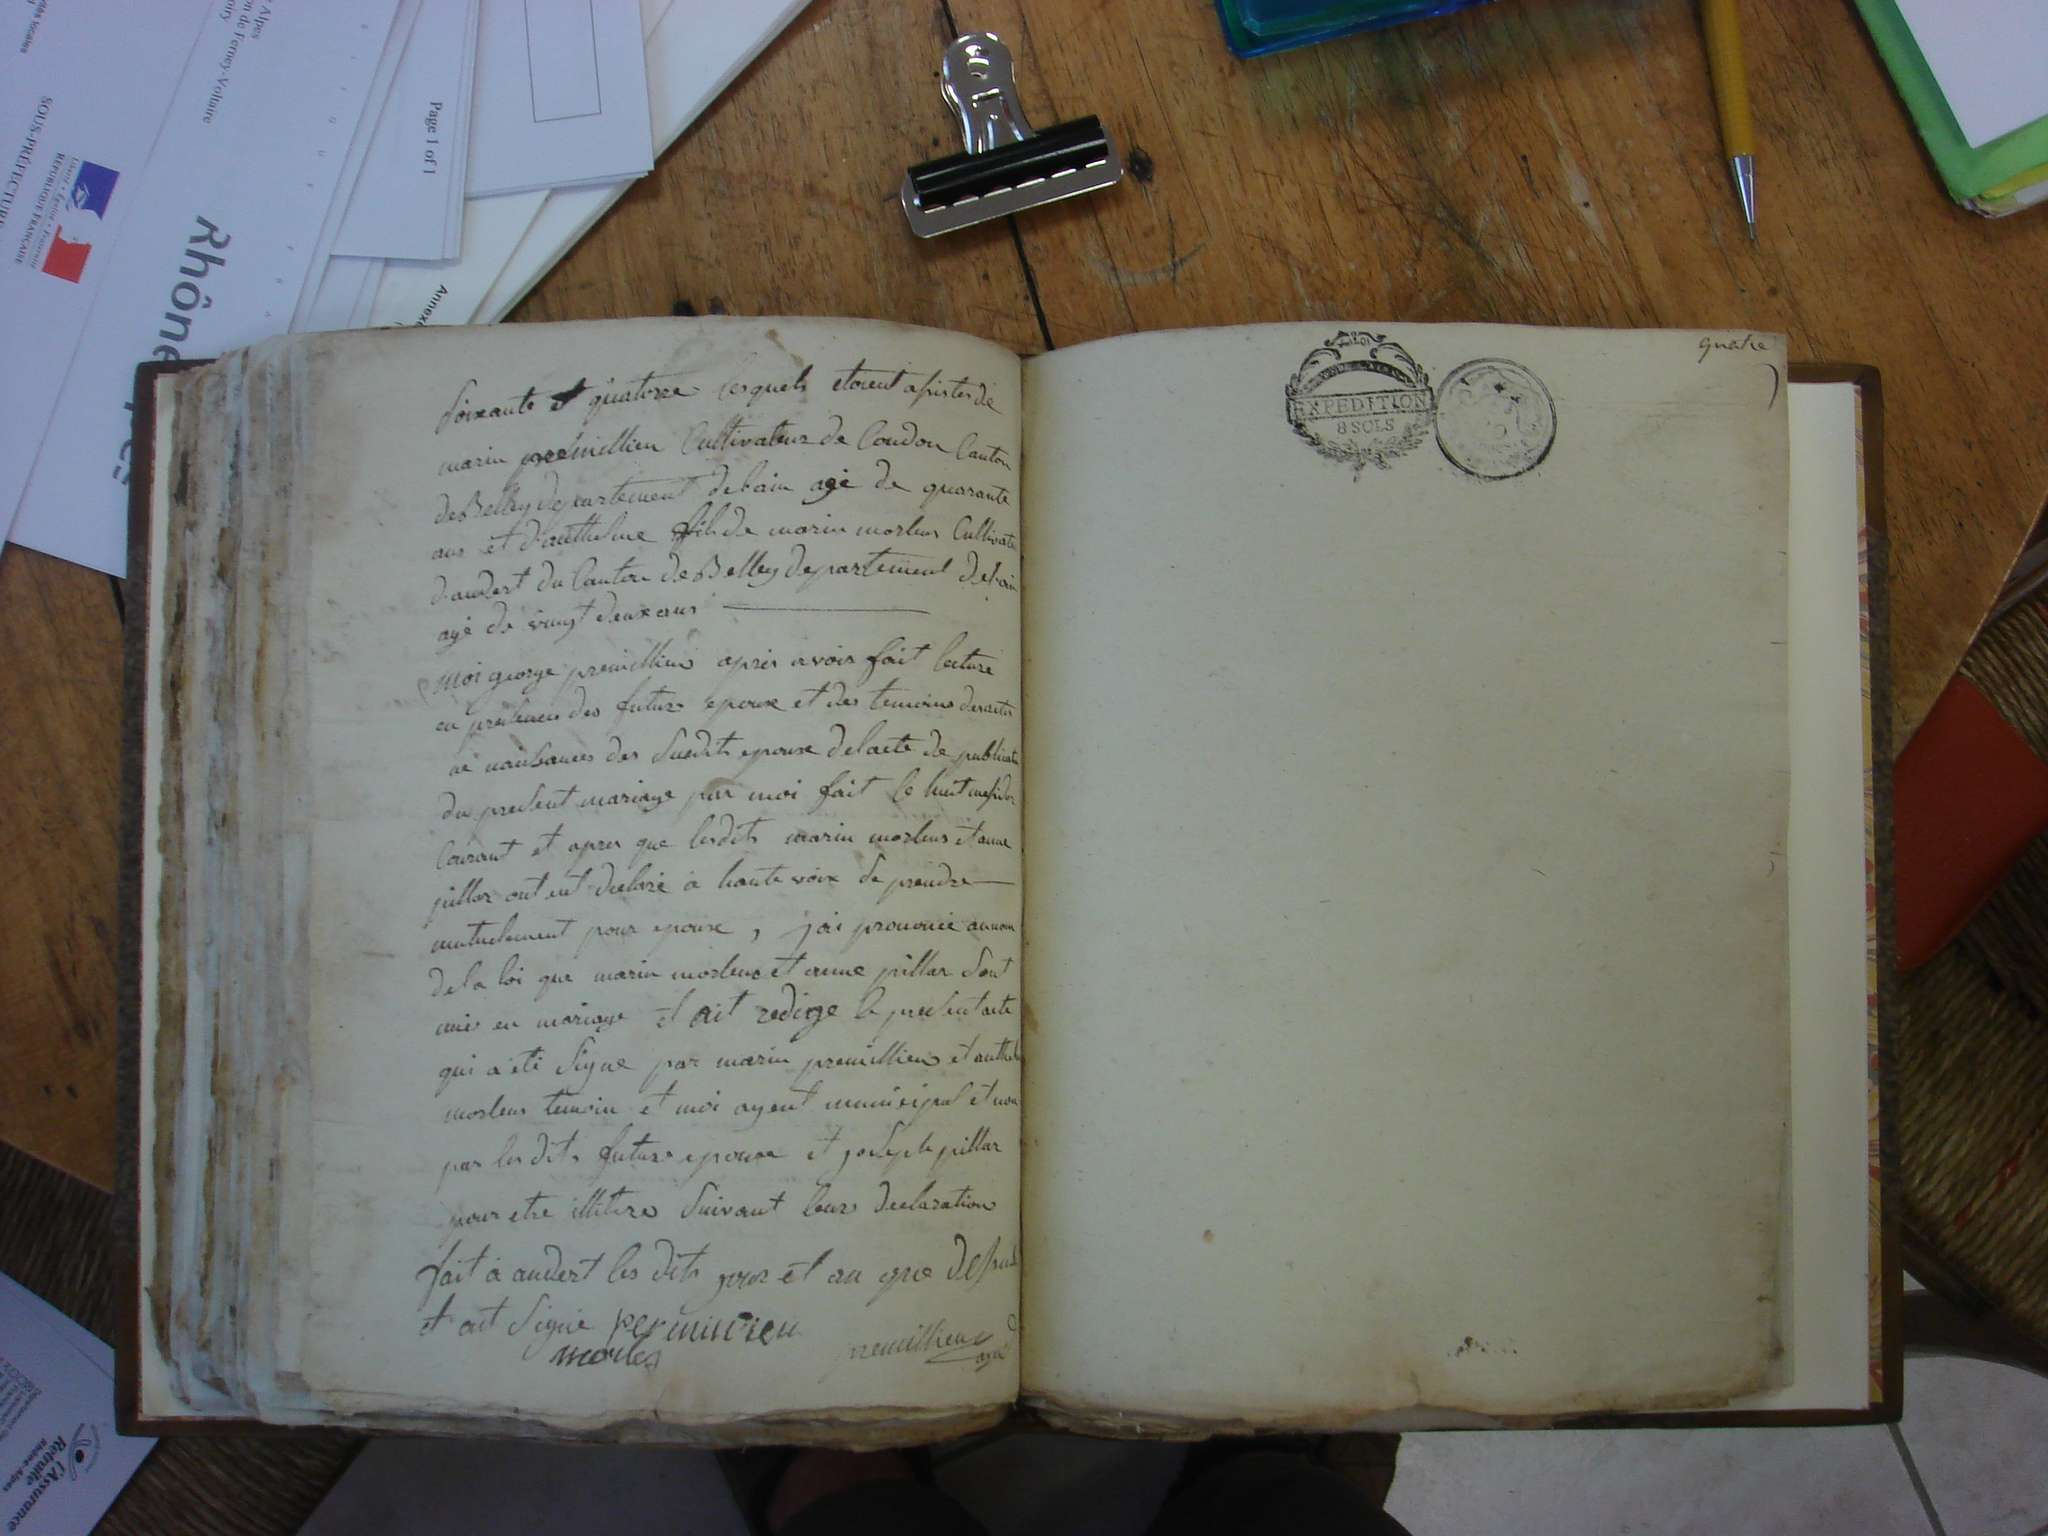 soixante et quatorze lesquels etoient assistes de
marin premillieu Cultivateur de Coudon Canton
de Belley departement de lain agé de quarante
ans et d'anthelme fils de marin morlens Cultivate
d'andert du Canton de Belley departement de lain
agé de vingt deux ans
moi george premillieu apres avoir fait lecture
en presences des futurs epoux et des temoins des actes
de naissances des susdits epoux de lacte de publicatio
du present mariage par moi fait le huit messidor
Courant et apres que lesdits marin morlens et anne
pillar ont eut declaré a haute voix se prendre
mutuelement pour epoux, jai prononcé au nom
de la loi que marin morlens et anne pillar sont
unis en mariage et ait redige le present acte
qui a été signe par marin premillieu et anthel
morlens temoin et moi agent municipal et non
par les dits futurs epoux et joseph pillar
pour etre illitere suivant leur declaration
fait a andert les dits jour et an que dessus
et ont signé permilieu
morlens
premillieu
agt
quatre
EXPEDITION
8 SOLS
Page 1 of 1
Annexe
Alpes
on de Ferney-Voltaire
Rhône
Alpes
SOUS-PRÉFECTURE
Liberté • Égalité • Fraternité
RÉPUBLIQUE FRANÇAISE
l'Assurance
Retraite
Rhône-Alpes